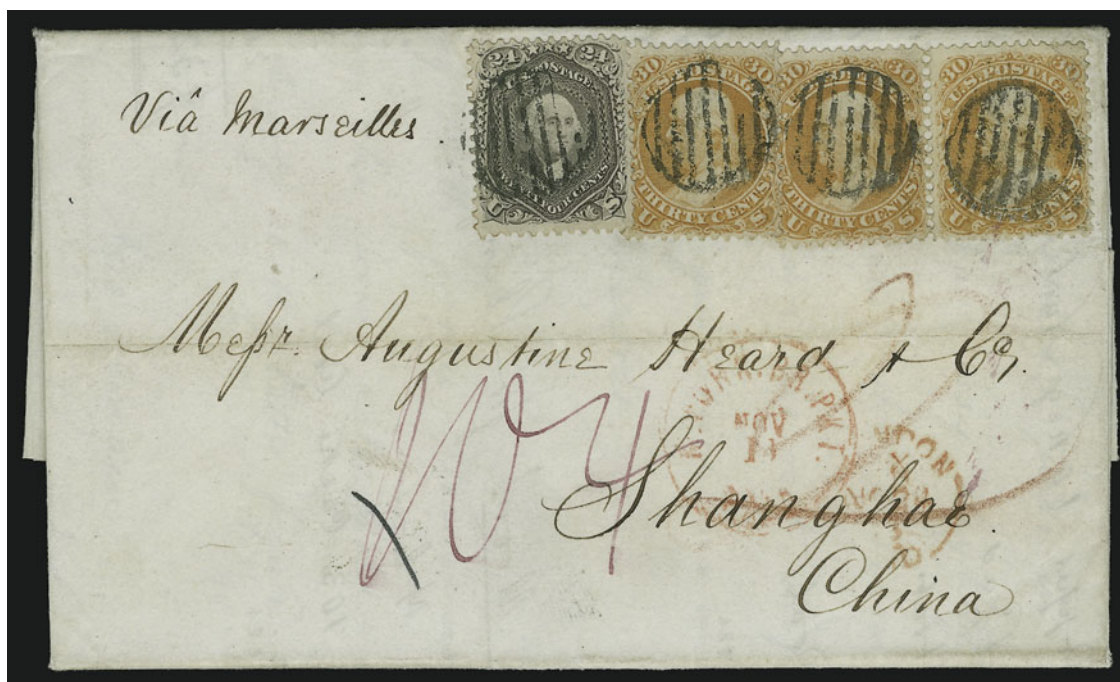 Viâ Marseilles
24 24
U.S. POSTAGE
TWENTY FOUR CENTS
U S
30 30
U.S. POSTAGE
THIRTY CENTS
U S
30 30
U.S. POSTAGE
THIRTY CENTS
U S
30 30
U.S. POSTAGE
THIRTY CENTS
U S
Messr. Augustine Heard & Co,
104
NOV
Shanghae
China